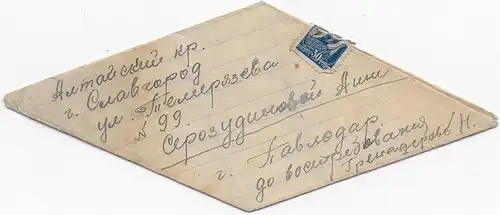 Алтайский кр.
г. Славгород
ул. Темирязева
N 99
Серозудиновой Ани
г. Павлодар
до востребования
Гренадерова Н.
30